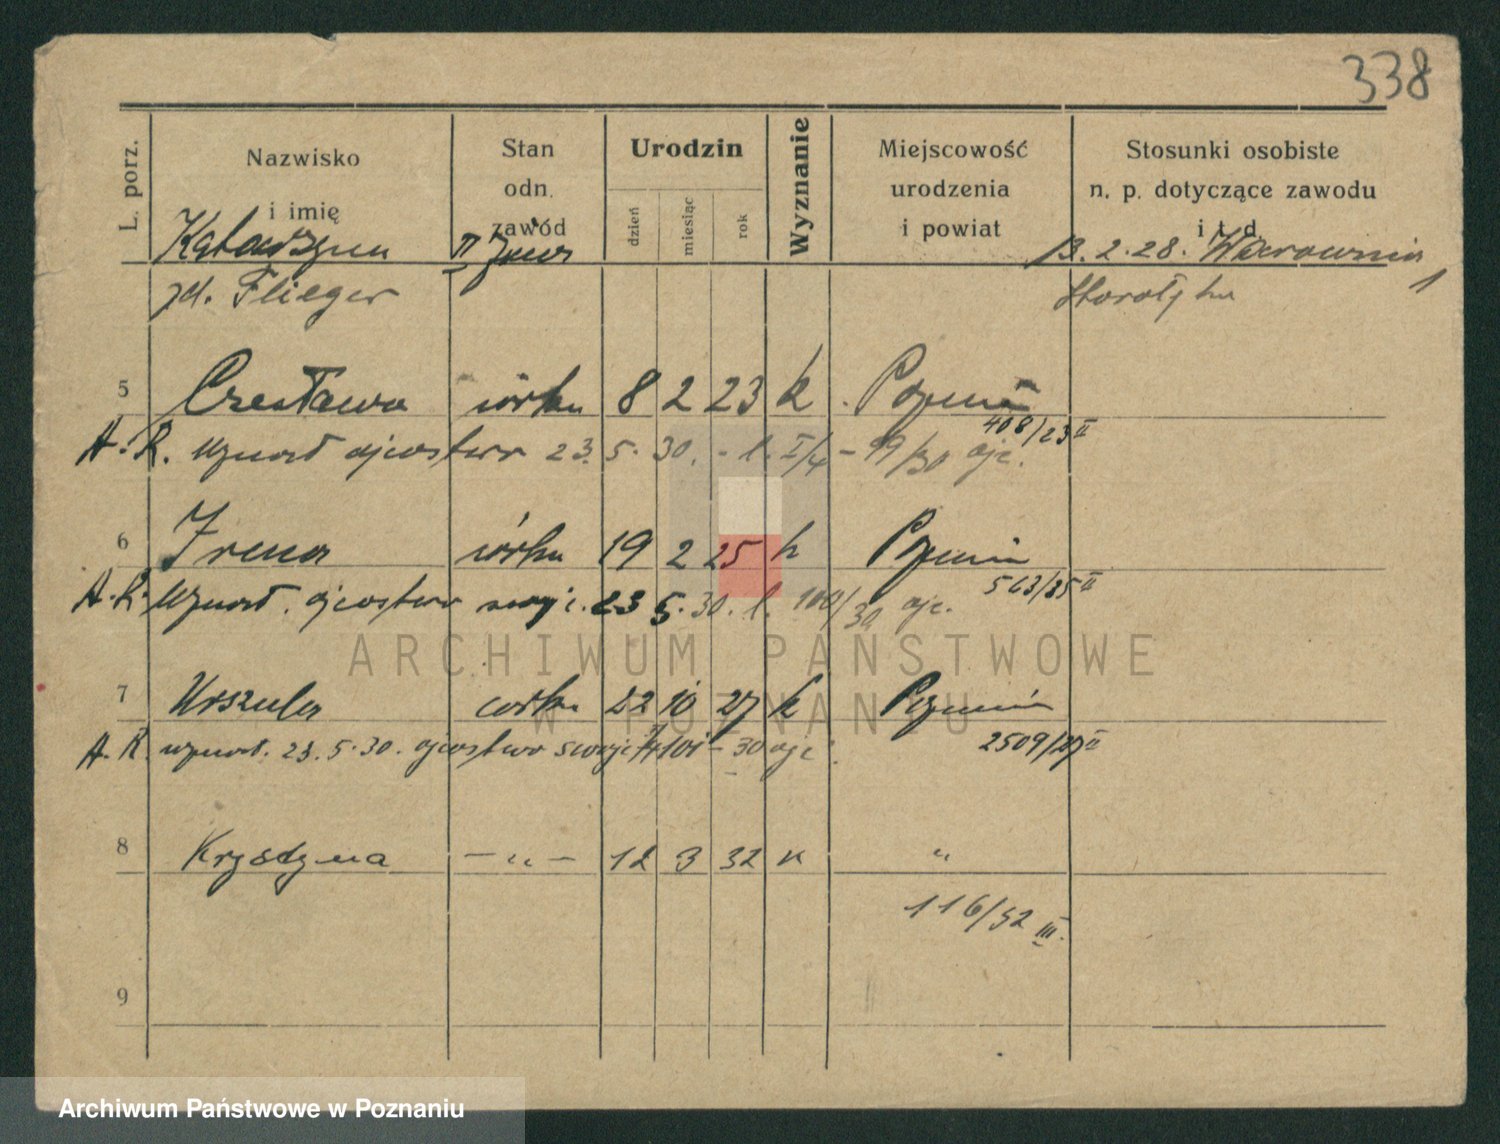 338
L. porz.
Nazwisko i imię
Stan odn. zawód
Urodzin
dzień
miesiąc
rok
Wyznanie
Miejscowość urodzenia i powiat
Stosunki osobiste n. p. dotyczące zawodu i t. d.
Katarzyna II 13. 2. 28.
zd. Flieger
5 Czesława córka 8 2 23 k Poznań
408/23 II
A. R. uznał ojcostwo 23. 5. 30. - l. I/4 - 99/30 ojc.
6 Irena córka 19 2 25 k Poznań
563/25 II
A. R. uznał. ojcostwo swoje. 23 5. 30. l. 100/30 ojc.
7 Urszula córka 22 10 27 k Poznań
2509/27 II
A. R. uznał. 23. 5. 30. ojcostwo swoje 101 - 30 ojc.
8 Krystyna — „ — 12 3 32 k „
116/32 III.
9
ARCHIWUM PAŃSTWOWE
W POZNANIU
Archiwum Państwowe w Poznaniu